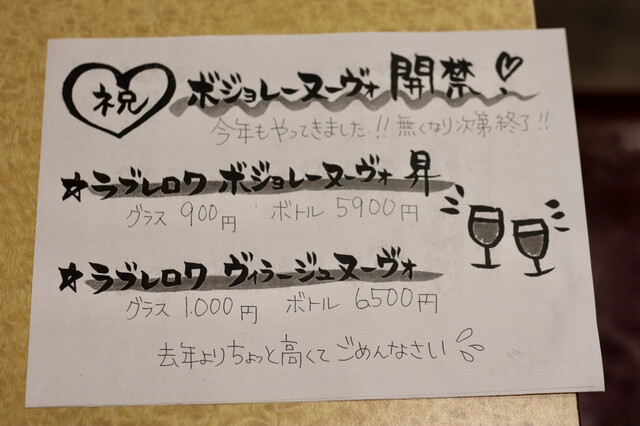 祝 ボジョレーヌーヴォ 開禁!
今年もやってきました!!無くなり次第終了!!
☆ラブレロワ ボジョレーヌーヴォ 昇
グラス 900円 ボトル 5900円
☆ラブレロワ ヴィラージュヌーヴォ
グラス 1.000円 ボトル 6500円
去年よりちょっと高くてごめんなさい